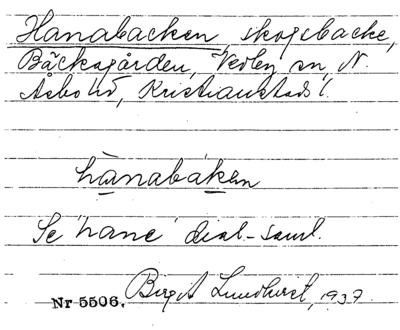 Hanabacken, skogsbacke,
Bäcksgården, Vedby sn, N.
Åsbo hd, Kristianstads l.
hànabákan
Se 'hane' dial-saml.
Nr 5506. Birgit Lundqvist, 1937